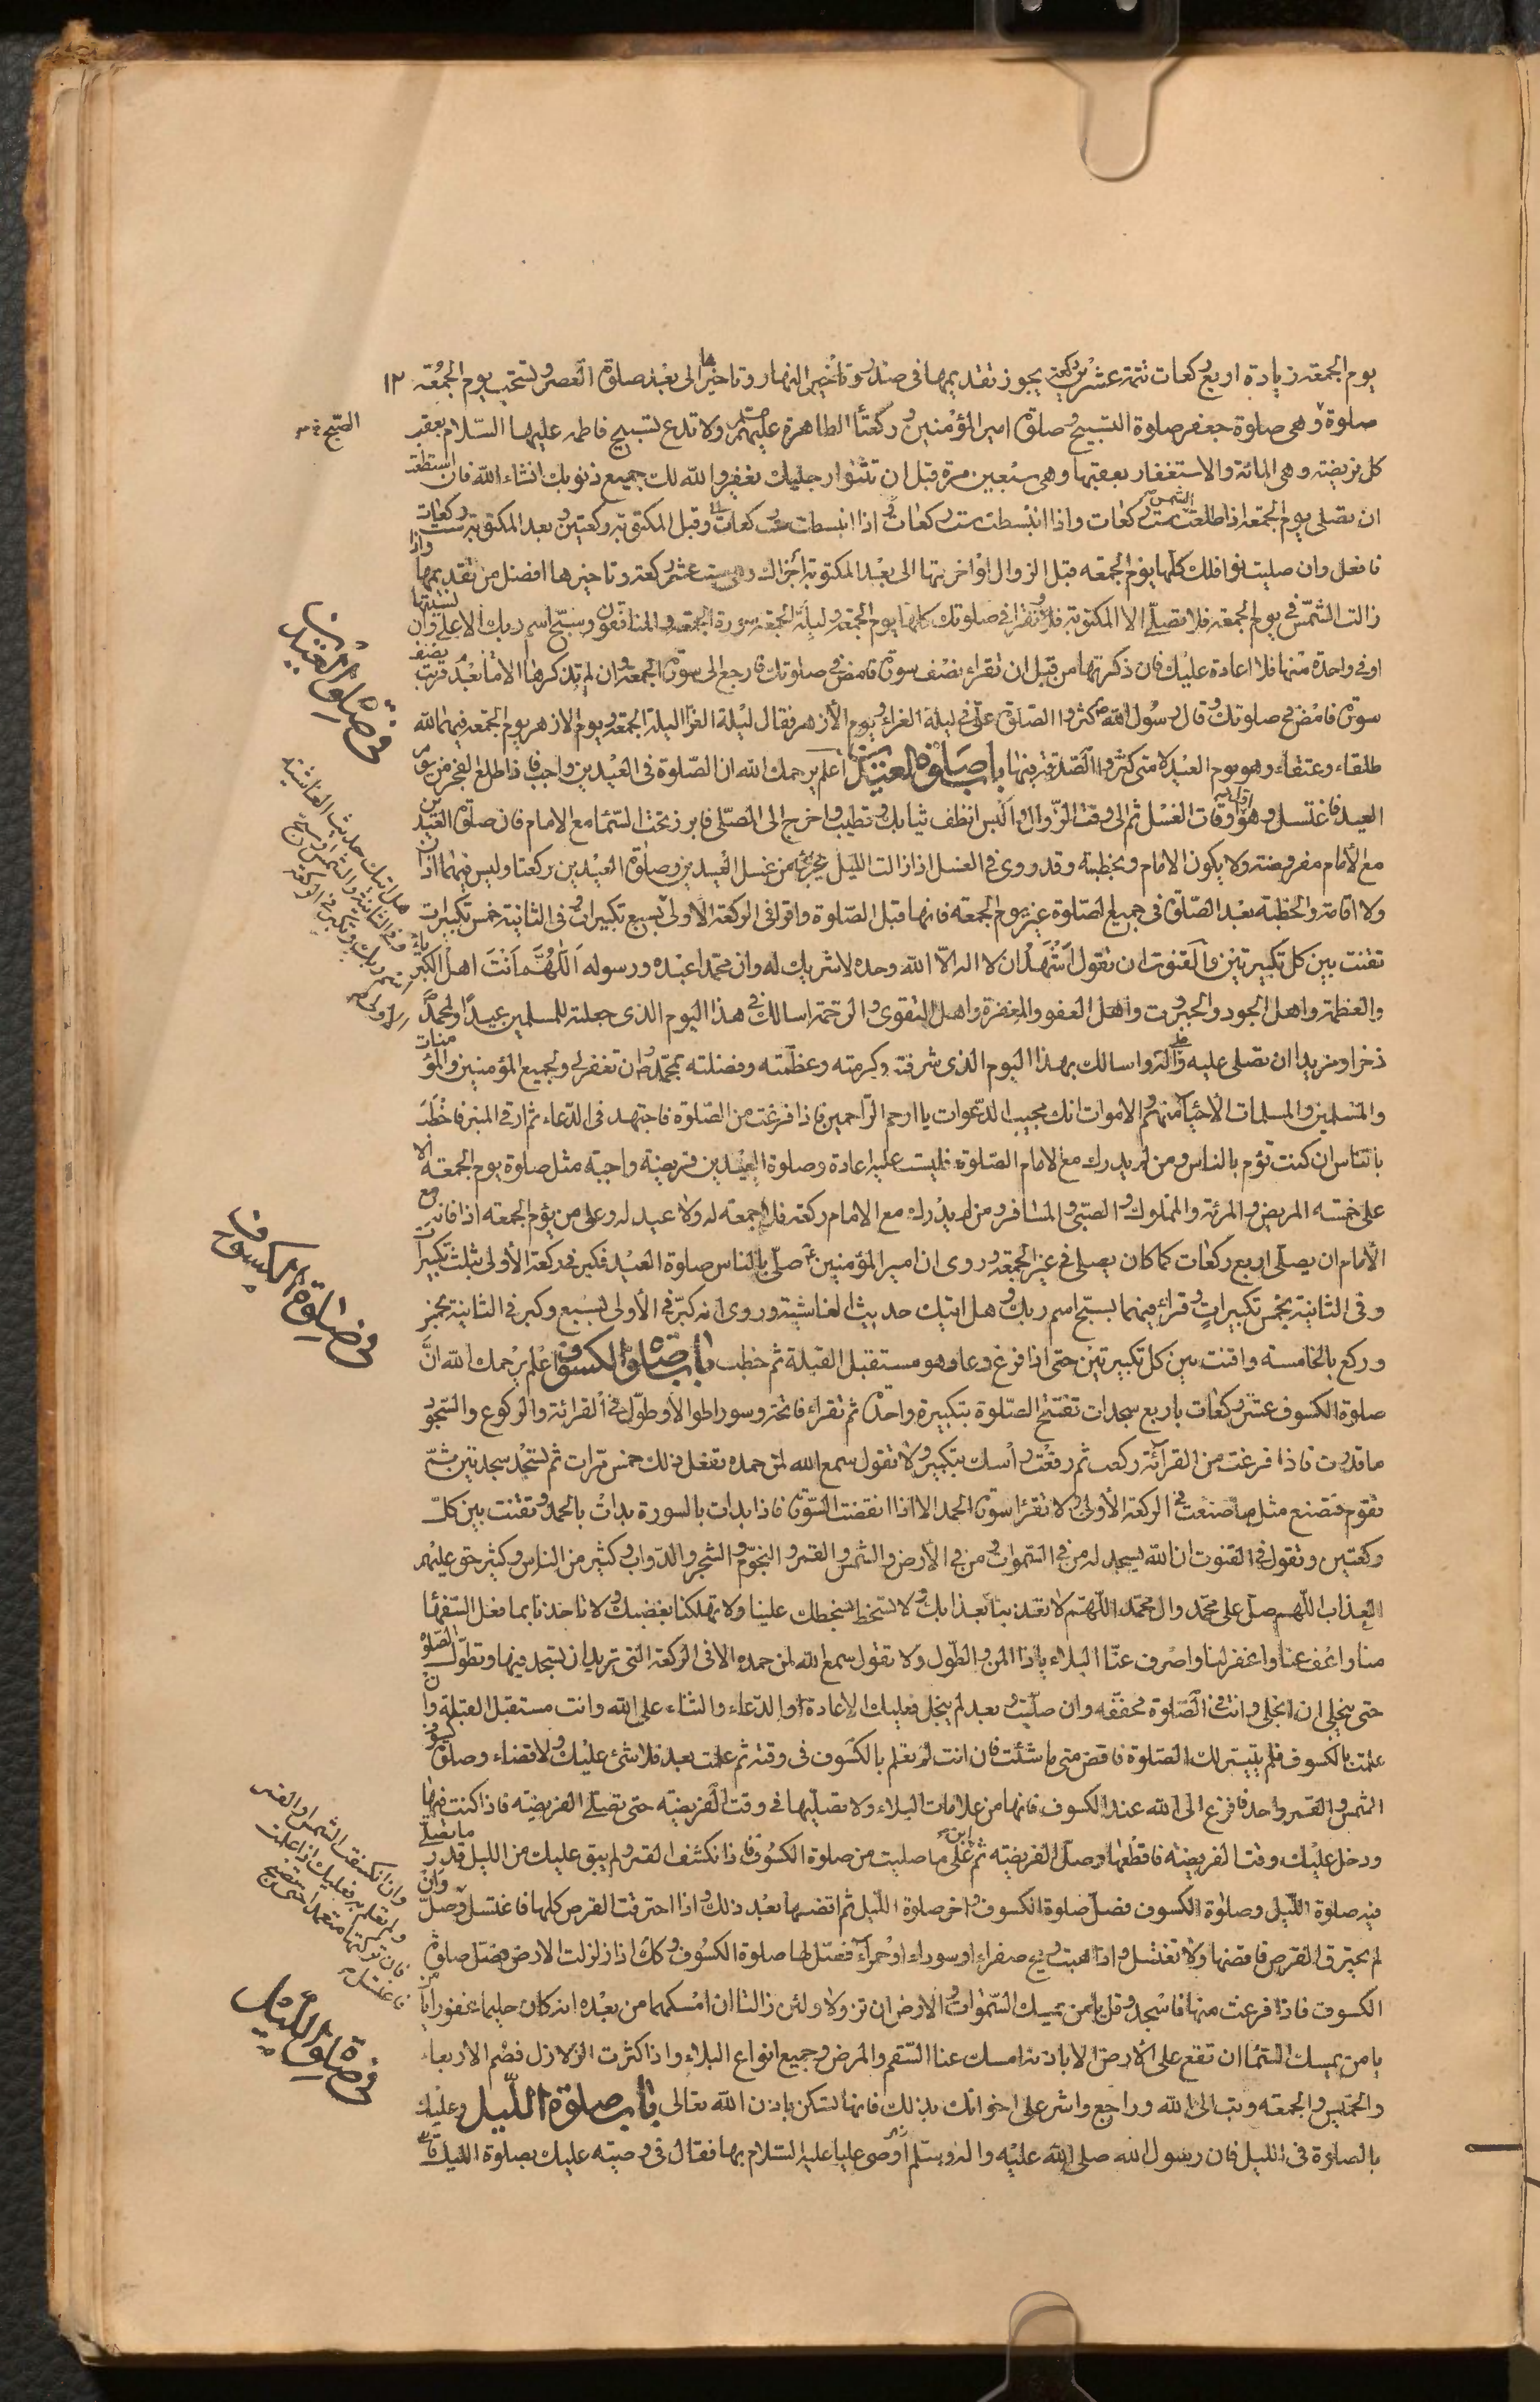 يوم الجمعة زيادة اربع ركعات تتمة عشرين ركعة يجوز تقديمها في صدر النهار وتاخيرها الى بعد صلوة العصر وتستحب يوم الجمعة ١٢
صلوة وهي صلوة جعفر صلوة التسبيح وصلوة امير المؤمنين وركعتا الطاهرة عليهم ولا تدع تسبيح فاطمه عليها السلام بعقب
كل فريضة وهي المائة والاستغفار بعقبها وهي سبعين مرة قبل ان تثنوا رجليك يغفر والله لك جميع ذنوبك انشاء الله فان استطعت
ان تصلي يوم الجمعة اذا طلعت الشمس ست ركعات واذا انبسطت ست ركعات وقبل المكتوبة ركعتين وبعد المكتوبة ست ركعات
فافعل وان صليت نوافلك كلها يوم الجمعه قبل الزوال او اخرتها الى بعد المكتوبة اجزاك وهي ست عشر ركعة وتاخيرها افضل من تقديمها واذا
زالت الشمس في يوم الجمعة فلا تصلي الا المكتوبة وتقرا في صلوتك كلها يوم الجمعة وليلة الجمعة سورة الجمعة والمنافقون وسبح اسم ربك الاعلى وان نسيتها
او في واحدة منها فلا اعادة عليك فان ذكرتها من قبل ان تقراء نصف سورة فارجع الى سورة الجمعة وان لم تذكرها الا ما بعد قرئت نصف
سورة فامض في صلوتك وقال رسول الله اكثروا الصلوة علي في ليلة الغراء ويوم الازهر فقال ليلة الغرا ليلة الجمعة ويوم الازهر يوم الجمعه فيهما لله
طلقاء وعتقاء وهو يوم العيد لامتي اكثروا الصدقة فيها باب صلوة العيدين اعلم يرحمك الله ان الصلوة في العيدين واجب فاذا طلع الفجر من يوم
العيد فاغتسل وهو اول اوقات الغسل ثم الى وقت الزوال والبس انظف ثيابك وتطيب واخرج الى المصلي فابرز تحت السماء مع الامام فان صلوة العيدين
مع الامام مفروضة ولا يكون الا بامام وبخطبة وقد روي في الغسل اذا زالت الليل يجزي من غسل العيدين وصلوة العيدين ركعتا وليس فيهما اذان
ولا اقامة والخطبة بعد الصلوة في جميع الصلوة غير يوم الجمعه فانها قبل الصلوة واقرا في الركعة الاولى وكبر في الاولى بسبع تكبيرات وفي الثانية خمس تكبيرات
تقنت بين كل تكبيرتين والقنوت ان تقول اشهد ان لا اله الا الله وحده لا شريك له وان محمدا عبده ورسوله اللهم انت اهل الكبرياء
والعظمة واهل الجود والجبروت واهل العفو والمغفرة واهل التقوى والرحمة اسالك في هذا اليوم الذي جعلته للمسلمين عيدا ولمحمد
ذخرا ومزيدا ان تصلي عليه وآله واسالك بهذا اليوم الذي شرفته وكرمته وعظمته وفضلته بمحمد ان تغفر لي ولجميع المؤمنين والمؤمنات
والمسلمين والمسلمات الاحياء منهم والاموات انك مجيب الدعوات يا ارحم الراحمين فاذا فرغت من الصلوة فاجتهد في الدعاء ثم ارق المنبر فاخطب
بالناس ان كنت تؤم بالناس ومن لم يدرك مع الامام الصلوة فليست عليه اعادة وصلوة العيدين فريضة واجبة مثل صلوة يوم الجمعة الا
على خمسه المريض والمرئة والمملوك والصبي والمسافر ومن لم يدرك مع الامام ركعة فلا جمعه له ولا عيد له وعلى من يؤم الجمعه اذا فاته مع
الامام ان يصلي اربع ركعات كما كان يصلي في غير الجمعة وروي ان امير المؤمنين صلى بالناس صلوة العيد فكبر في ركعة الاولى بثلث تكبيرات
وفي الثانية بخمس تكبيرات وقرأ فيهما بسبح اسم ربك وهل اتيك حديث الغاشية وروي انه كبر في الاولى بسبع وكبر في الثانية بخمس
وركع بالخامسة واقنت بين كل تكبيرتين حتى اذا فرغ دعا وهو مستقبل القبلة ثم خطب باب صلوة الكسوف اعلم يرحمك الله ان
صلوة الكسوف عشر ركعات باربع سجدات تفتتح الصلوة بتكبيرة واحدة ثم تقراء فاتحة وسورا طوالا وطول في القرائة والركوع والسجود
ما قدرت فاذا فرغت من القراءة ركعت ثم رفعت راسك بتكبير ولا تقول سمع الله لمن حمده تفعل ذلك خمس مرات ثم تسجد سجدتين ثم
تقوم فتصنع مثل ما صنعت في الركعة الاولى ولا تقرا سورة الحمد الا اذا انقضت السورة فاذا بدات بالسورة بدات بالحمد وتقنت بين كل
ركعتين وتقول في القنوت ان الله يسجد له من في السموات ومن في الارض والشمس والقمر والنجوم والشجر والدواب وكثير من الناس وكثير حق عليهم
العذاب اللهم صل على محمد وال محمد اللهم لا تعذبنا بعذابك ولا تسخط بسخطك علينا ولا تهلكنا بغضبك ولا تاخذنا بما فعل السفهاء
منا واعف عنا واغفر لنا واصرف عنا البلاء يا ذا المن والطول ولا تقول سمع الله لمن حمده الا في الركعة التي تريد ان تسجد فيها وتطول الصلوة
حتى ينجلي وان انجلى وانت في الصلوة فخففه وان صليت وبعد لم ينجل فعليك الاعادة او الدعاء والثناء على الله وانت مستقبل القبلة وان
علمت بالكسوف فلم يتيسر لك الصلوة فاقض متى ما شئت فان انت لم تعلم بالكسوف في وقته ثم علمت بعد فلا شئ عليك ولا قضاء وصلوة كسوف
الشمس والقمر واحد فافزع الى الله عند الكسوف فانها من علامات البلاء ولا تصليها في وقت الفريضة حتى تصلي الفريضة فاذا كنت فيها
ودخل عليك وقت الفريضة فاقطعها وصل الفريضة ثم ابن على ما صليت من صلوة الكسوف فاذا انكسف القمر ولم يبق عليك من الليل قدر ما تصلي
فيه صلوة الليل وصلوة الكسوف فصل صلوة الكسوف واخر صلوة الليل ثم اقضها بعد ذلك واذا احترقت القرص كلها فاغتسل وصل وان
لم يحترق القرص فاقضها ولا تغتسل واذا هبت ريح صفراء او سوداء او حمراء فصل لها صلوة الكسوف وكذا اذا زلزلت الارض فصل صلوة
الكسوف فاذا فرغت منها فاسجد وقل يا من يمسك السموات والارض ان تزولا ولئن زالتا ان امسكهما من بعده انه كان حليما غفورا
يا من يمسك السماء ان تقع على الارض الا باذنه امسك عنا السقم والمرض وجميع انواع البلاء واذا كثرت الزلازل فصم الاربعاء
والخميس والجمعه وتب الى الله وراجع واشر على اخوانك بذلك فانها تسكن باذن الله تعالى باب صلوة الليل وعليك
بالصلوة في الليل فان رسول الله صلى الله عليه واله وسلم اوصى عليا عليه السلام بها فقال في وصيته عليك بصلوة الليل
في صلوة العيدين
هل اتيك حديث الغاشية
وفي الثانية والشمس او سبح
اسم ربك وتكبر في الركعة
الاولى
في صلوة الكسوف
وان انكسفت الشمس او القمر
ولم تعلم به فعليك اذا علمت
فان تركتها متعمدا حتى تصبح
فاغتسل
في صلوة الليل